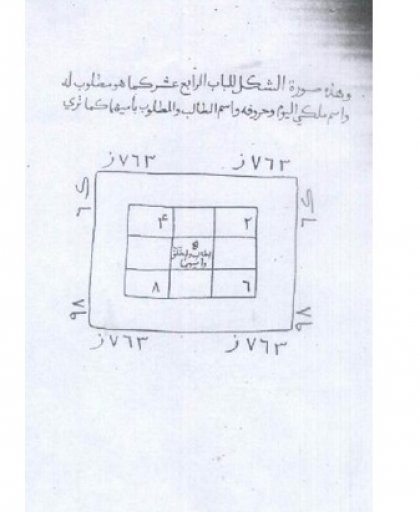 وهذه صورة الشكل للباب الرابع عشر كما هو مطلوب له
واسم ملكي اليوم وحروفه واسم الطالب والمطلوب باميهما كما ترى
٧٦٣ ز ٧٦٣ ز
٢ ۴
٦ ٨
٩٨ ٩٨
٧٦٣ ز ٧٦٣ ز